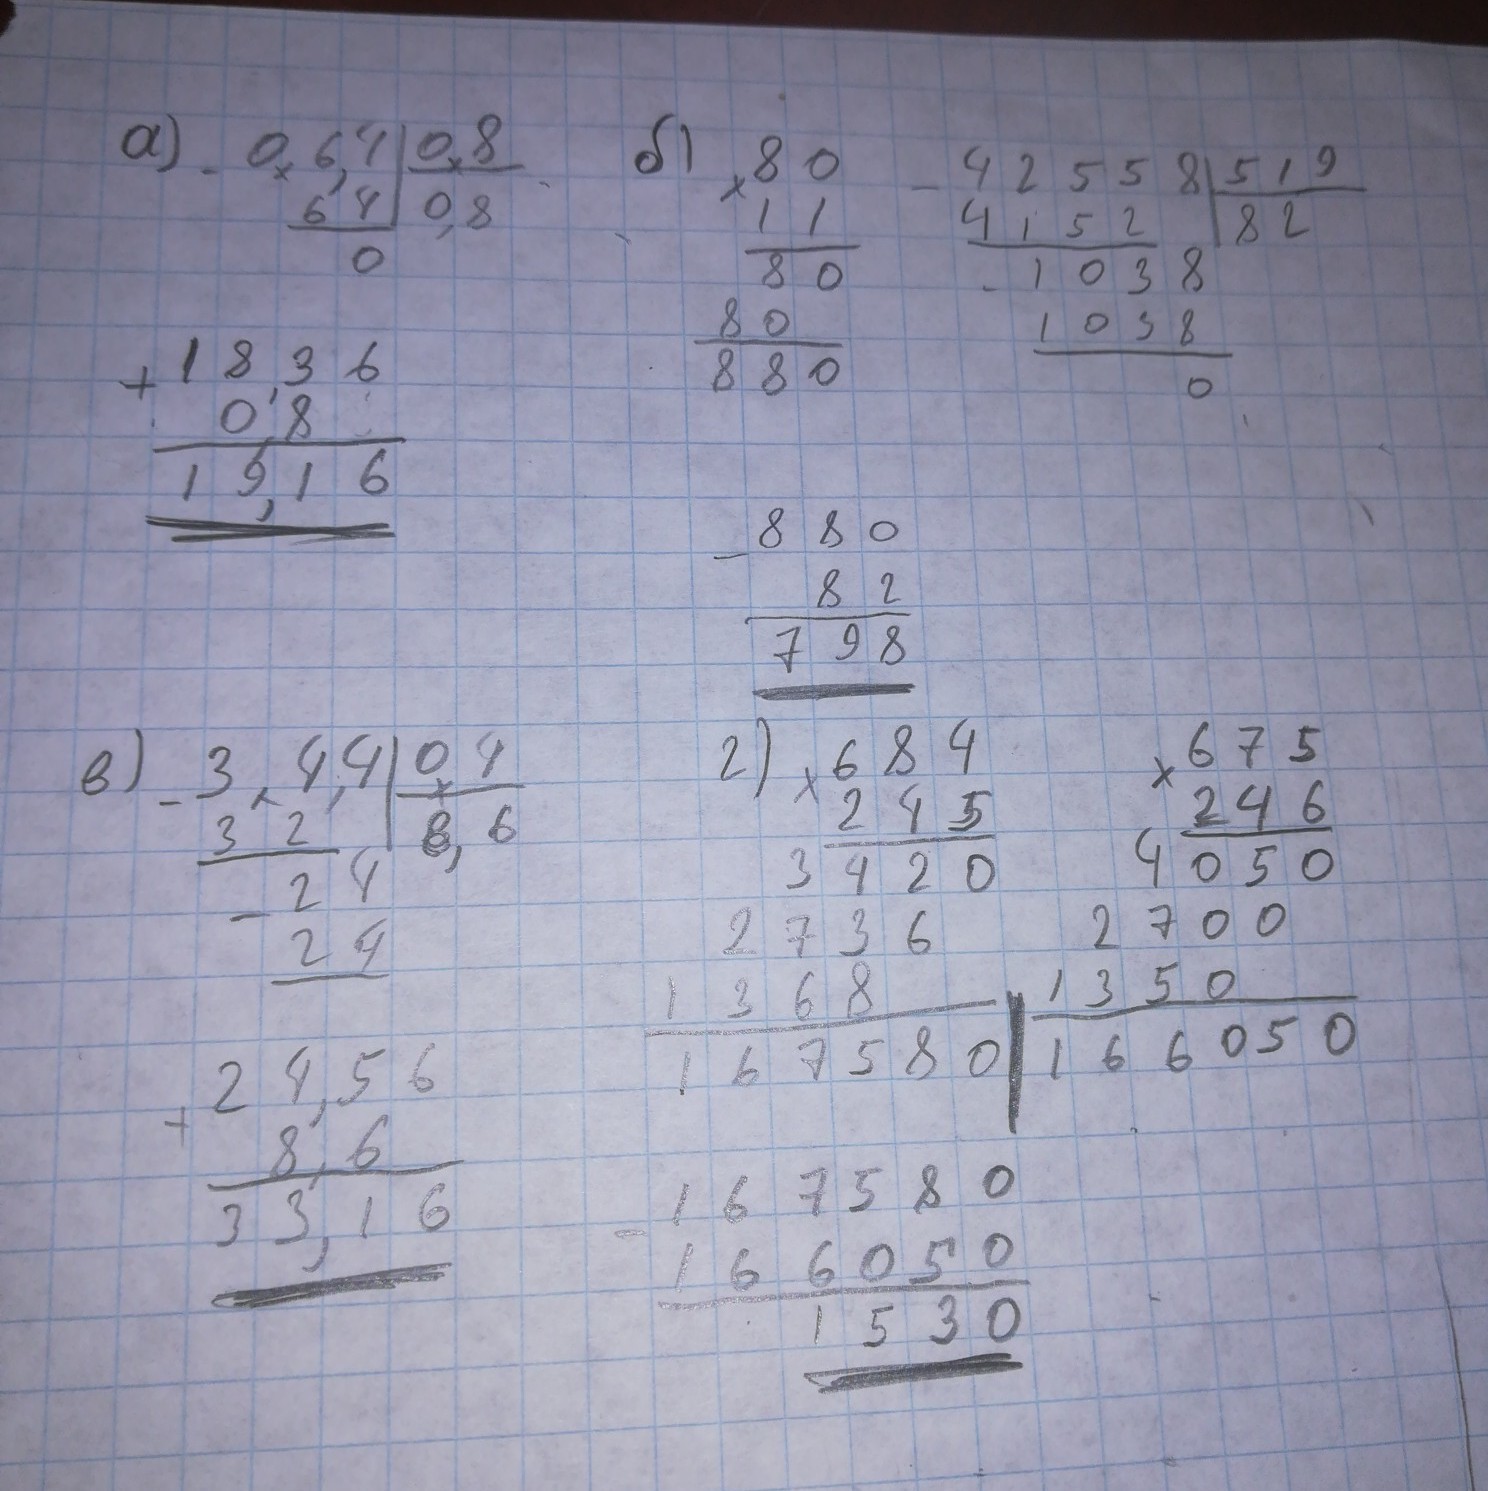 а) - 0,6,4 | 0,8
64 | 0,8
0
+ 18,36
0,8
19,16
б) × 80
11
80
80
880
- 42558 | 519
4152 | 82
- 1038
1038
0
- 880
82
798
в) - 3,4,4 | 0,4
32 | 8,6
- 24
24
+ 24,56
8,6
33,16
г) × 684
245
3420
2736
1368
167580
× 675
246
4050
2700
1350
166050
- 167580
166050
1530